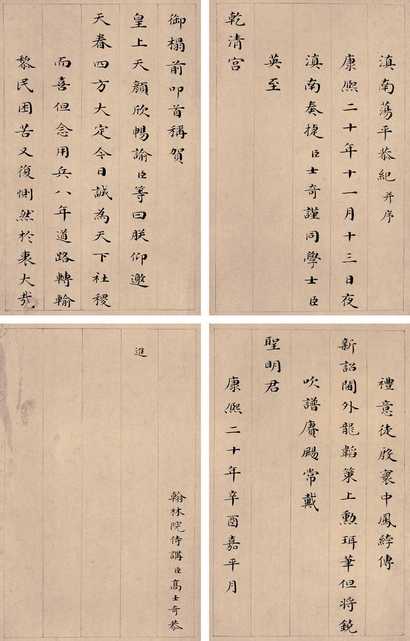 滇南蕩平恭紀并序
康熙二十年十一月十三日夜
滇南奏捷臣士奇謹同學士臣
英至
乾清宮
御榻前叩首稱賀
皇上天顏欣暢諭臣等曰朕仰邀
天眷四方大定今日誠為天下社稷
而喜但念用兵八年道路轉輸
黎民困苦又復惻然於衷大哉
禮意徒殷寰中鳳綍傳
新詔閫外龍韜策上勳珥筆但將鐃
吹譜賡颺常戴
聖明君
康熙二十年辛酉嘉平月
翰林院侍講臣高士奇恭
進